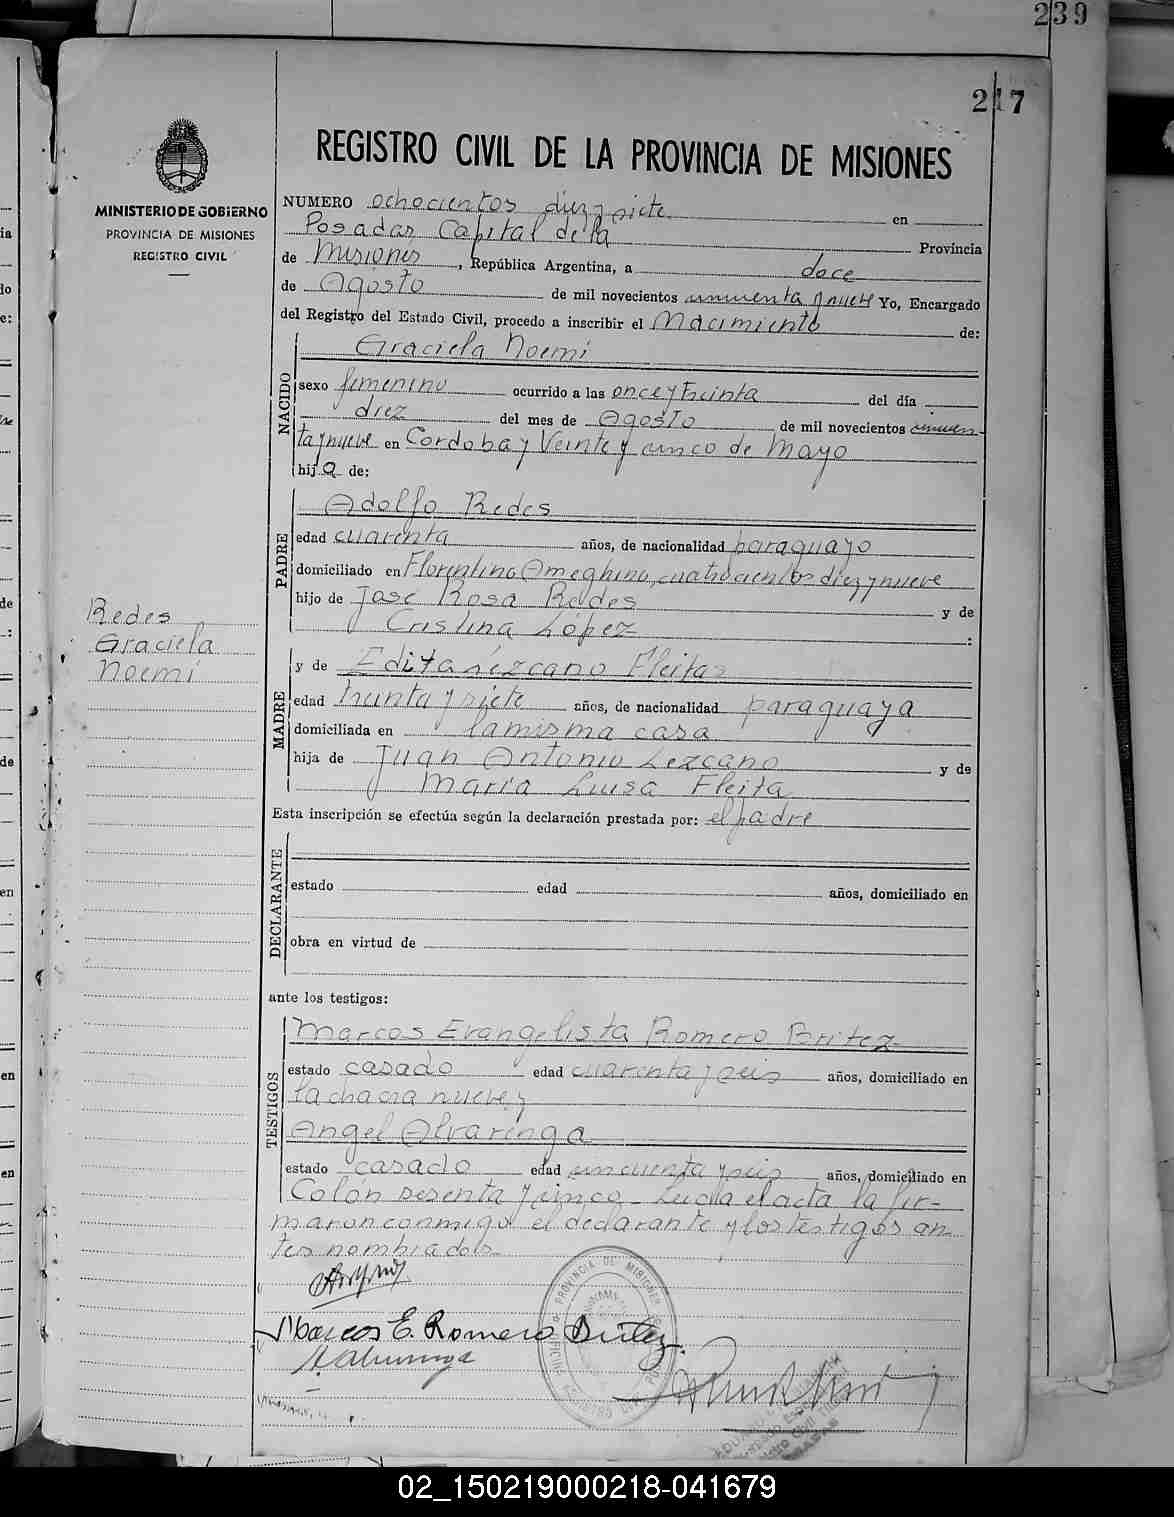 239
217
REGISTRO CIVIL DE LA PROVINCIA DE MISIONES
MINISTERIO DE GOBIERNO
PROVINCIA DE MISIONES
REGISTRO CIVIL
NUMERO ochocientos diez y siete en
Posadas Capital de la Provincia
de Misiones, República Argentina, a doce
de Agosto de mil novecientos cincuenta y nueve Yo, Encargado
del Registro del Estado Civil, procedo a inscribir el Nacimiento de:
NACIDO
Graciela Noemi
sexo femenino ocurrido a las once y treinta del día
diez del mes de Agosto de mil novecientos cincuen-
ta y nueve en Cordoba y Veinte y cinco de Mayo
hija de:
PADRE
Adolfo Redes
edad cuarenta años, de nacionalidad paraguayo
domiciliado en Florentino Ameghino, cuatrocientos diez y nueve
hijo de José Rosa Redes y de
Cristina López :
Redes
Graciela
Noemi
MADRE
y de Edita Lezcano Fleitas
edad treinta y siete años, de nacionalidad paraguaya
domiciliada en la misma casa
hija de Juan Antonio Lezcano y de
Maria Luisa Fleita
Esta inscripción se efectúa según la declaración prestada por: el padre
DECLARANTE
estado edad años, domiciliado en
obra en virtud de
ante los testigos:
TESTIGOS
Marcos Evangelista Romero Britez
estado casado edad cuarenta y seis años, domiciliado en
la chacra nueve y
Angel Alvarenga
estado casado edad cincuenta y seis años, domiciliado en
Colón sesenta y cinco - Leida el acta la fir-
maron conmigo el declarante y los testigos an-
tes nombrados
Marcos E. Romero Britez.
PROVINCIA DE MISIONES
02_150219000218-041679